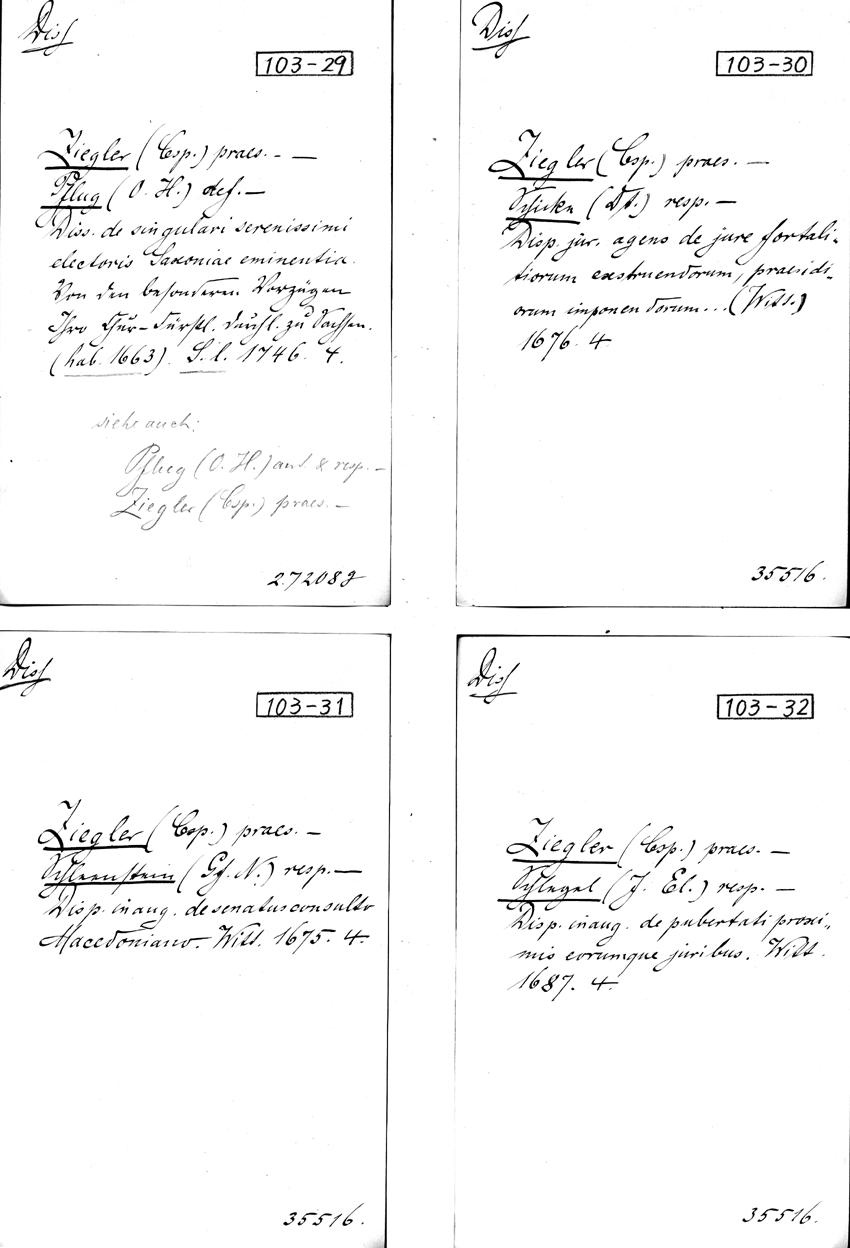 Diss
103-29
Ziegler (Csp.) praes. - —
Pflug (O. H.) def. —
Diss. de singulari serenissimi
electoris Saxoniae eminentia.
Von den besonderen Vorzügen
Ihro Chur-Fürstl. Durchl. zu Sachsen.
(hab. 1663). S. l. 1746. 4.
siehe auch:
Pflug (O. H.) aut. & resp. —
Ziegler (Csp.) praes. —
Diss
103-30
Ziegler (Csp.) praes. —
(Dt.) resp. —
Disp. jur. agens de jure fortali-
tiorum exstruendorum, praesidi-
orum imponendorum... (Witt.)
1676. 4
35516.
Diss
103-31
Ziegler (Csp.) praes. —
Schleenstein (Gf. N.) resp. —
Disp. inaug. de senatusconsulto
Macedoniano. Witt. 1675. 4.
35516.
Diss
103-32
Ziegler (Csp.) praes. —
Schlegel (J. El.) resp. —
Disp. inaug. de pubertati proxi-
mis eorumque juribus. Witt.
1687. 4.
35516.